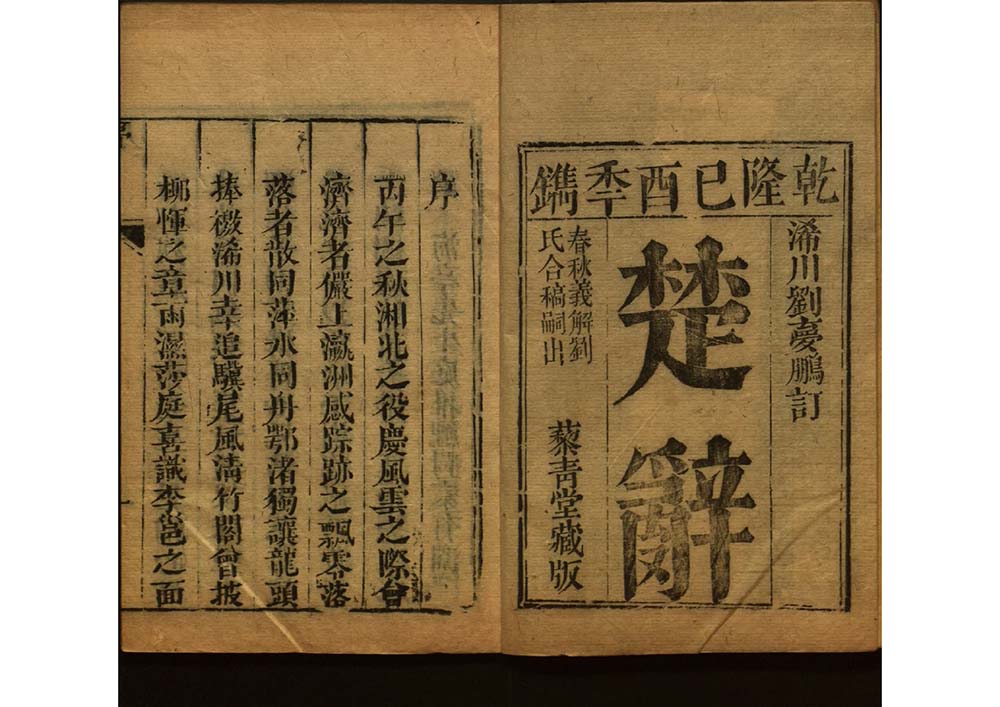 乾隆己酉季鐫
浠川劉夢鵬訂
楚辭
春秋義解劉
氏合稿嗣出
藜青堂藏版
序
丙午之秋湘北之役慶風雲之際會
濟濟者儼上瀛洲感踪跡之飄零落
落者散同萍水同舟鄂渚獨讓龍頭
捧襼浠川幸追驥尾風淸竹閣曾披
柳惲之章雨濕莎庭喜識李邕之面